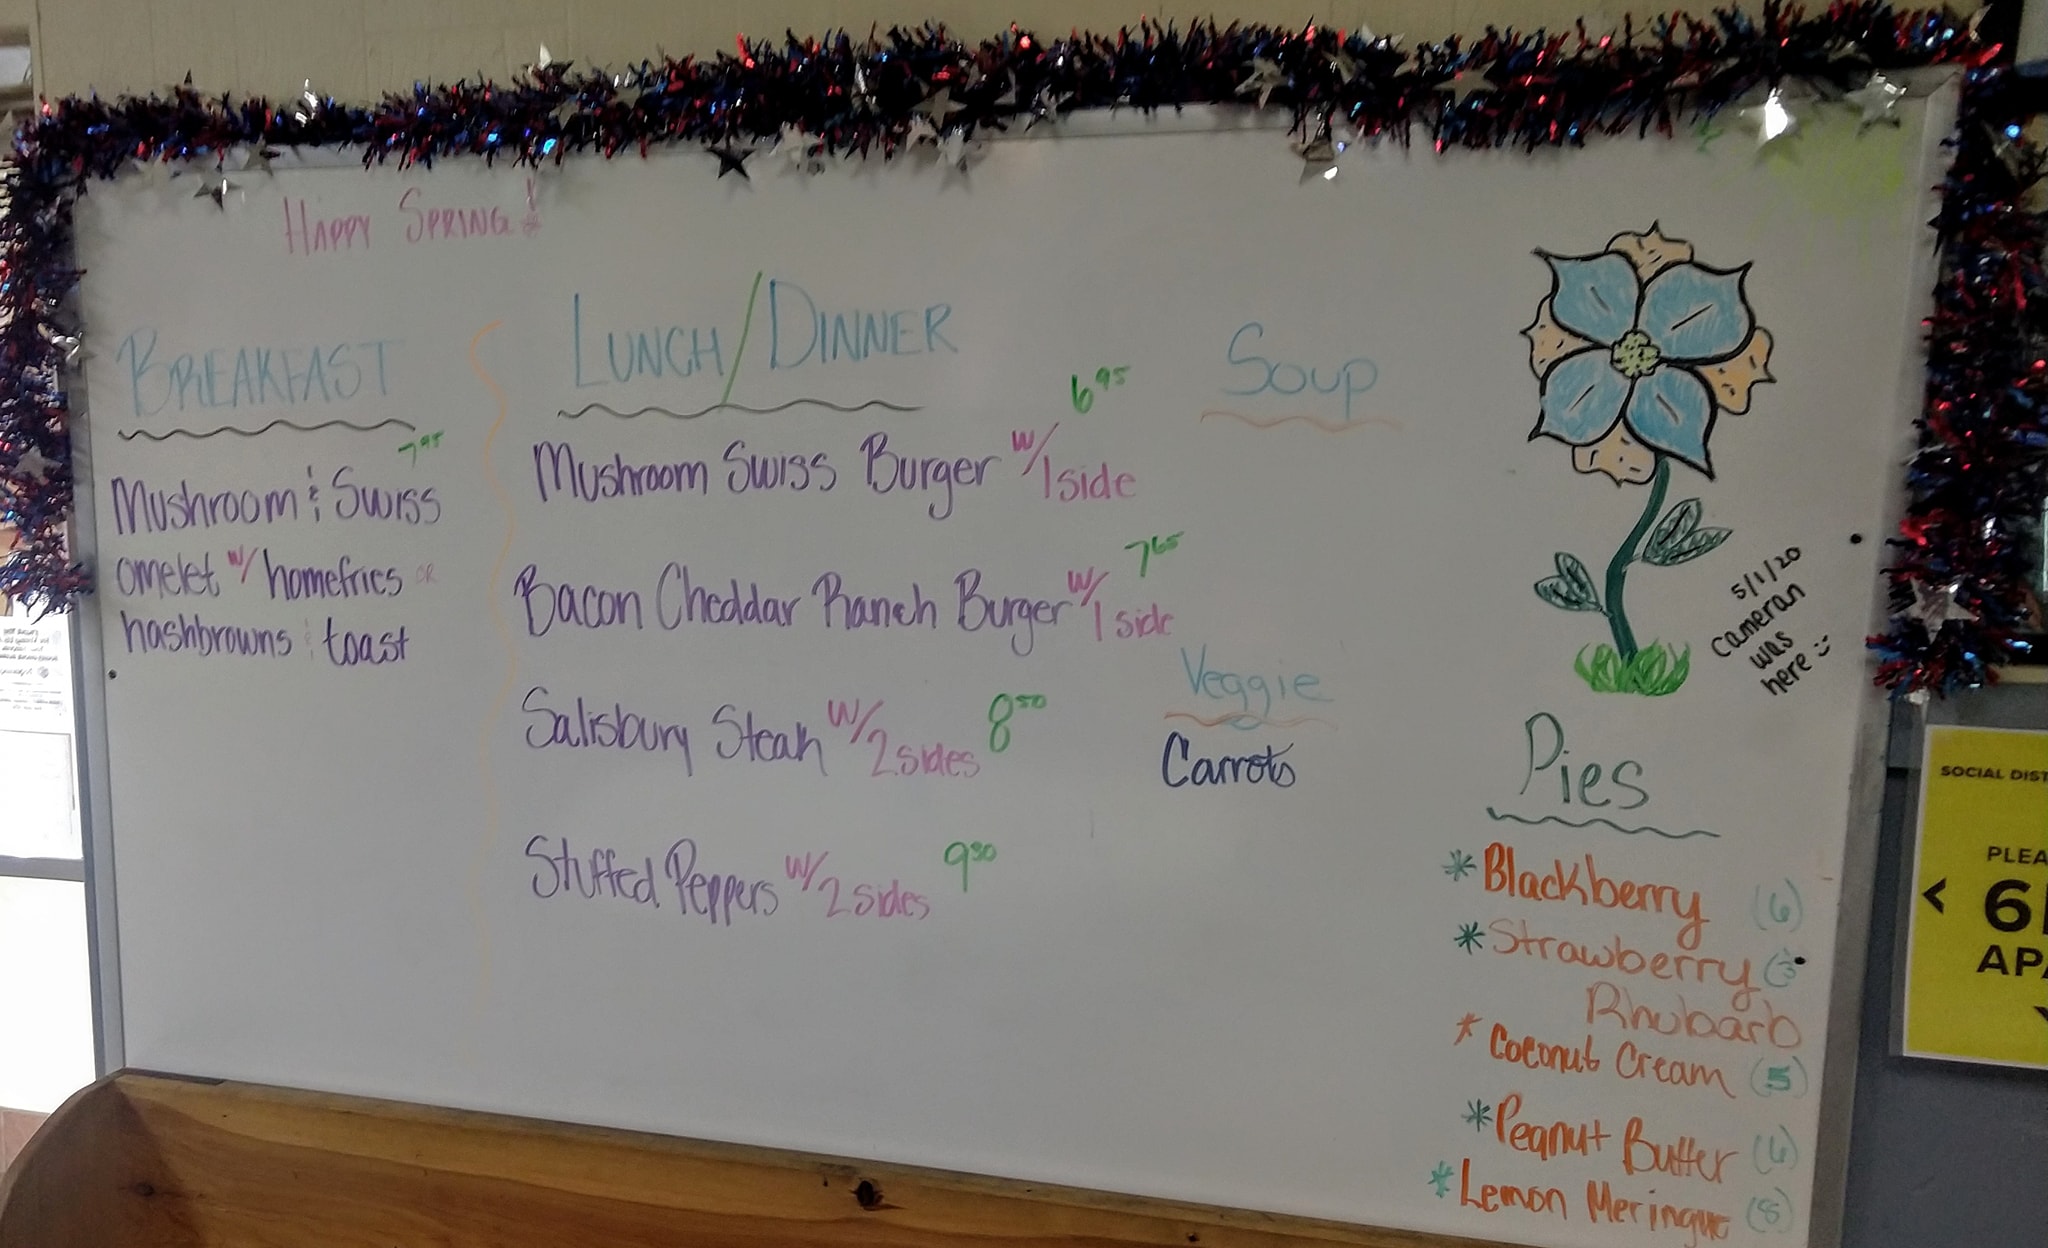 Happy Spring!
Breakfast
7.95
Mushroom & Swiss
omelet w/ homefries or
hashbrowns & toast
Lunch/Dinner
6.95
Mushroom Swiss Burger w/ 1 side
7.65
Bacon Cheddar Ranch Burger w/ 1 side
Salisbury Steak w/ 2 sides 8.50
Stuffed Peppers w/ 2 sides 9.50
Soup
Veggie
Carrots
5/1/20
Cameran
was
here :)
Pies
* Blackberry (6)
* Strawberry (3)
Rhubarb
* Coconut Cream (5)
* Peanut Butter
* Lemon Meringue (8)
SOCIAL